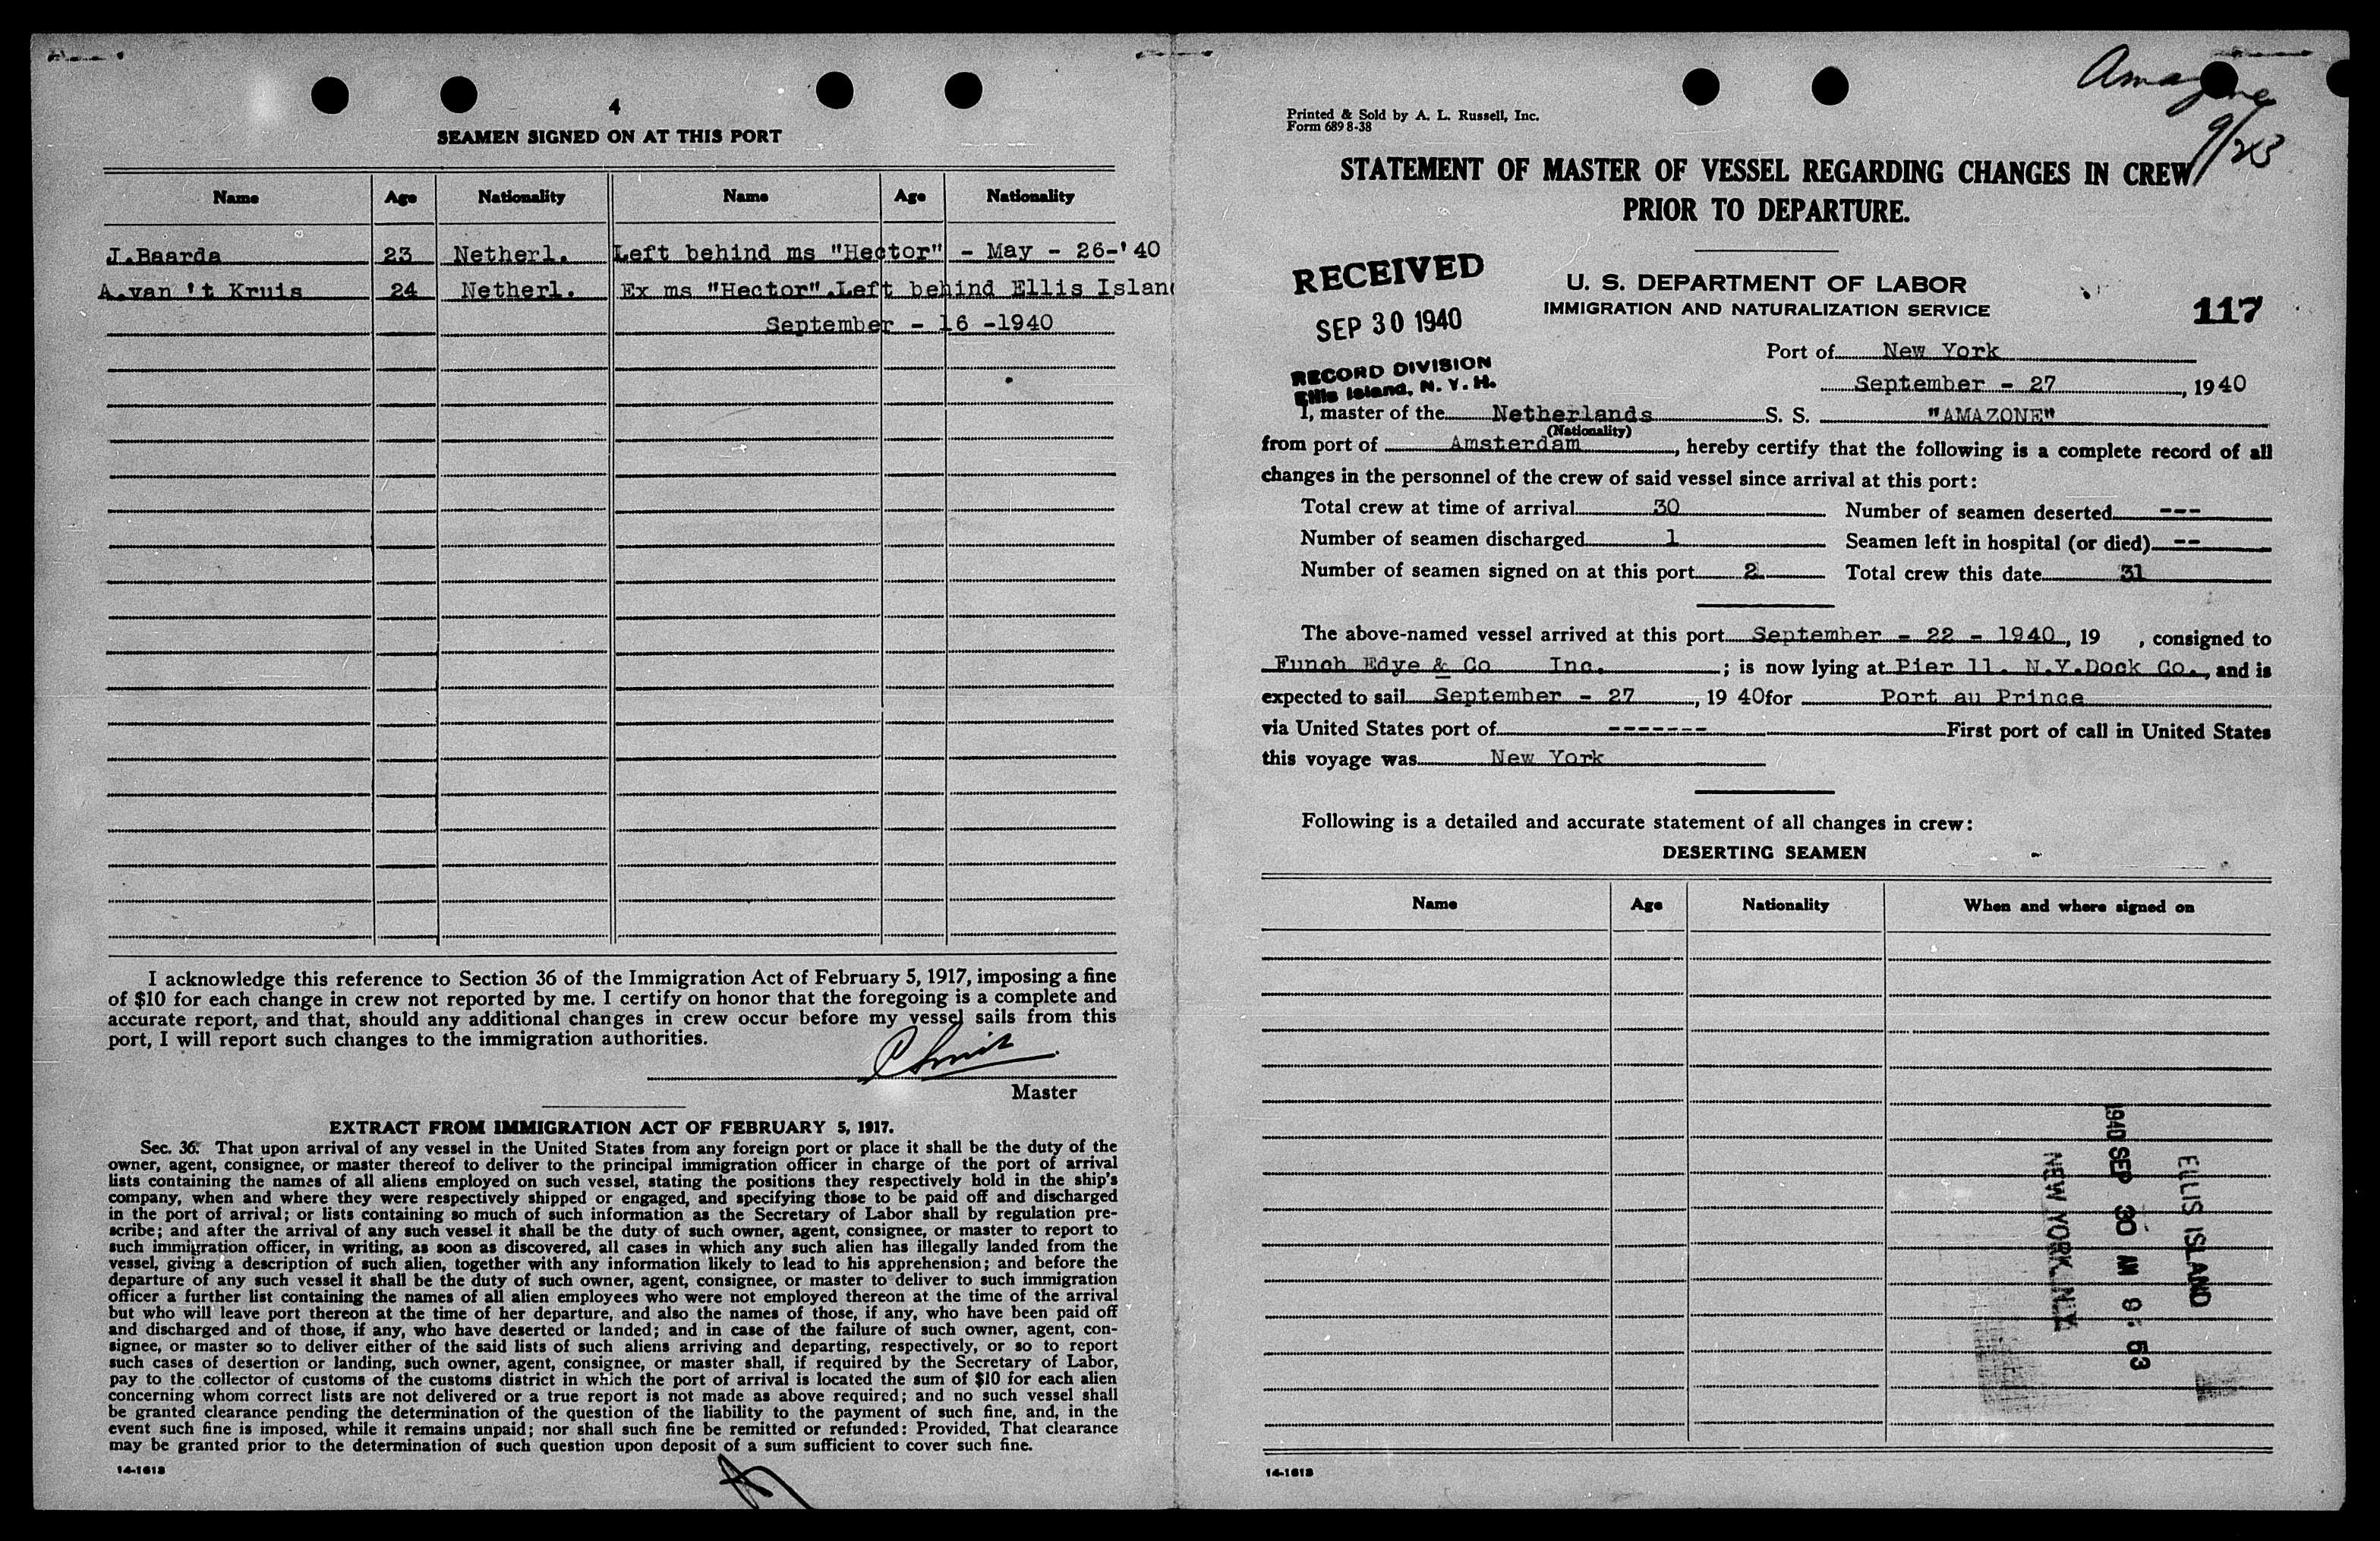 4
SEAMEN SIGNED ON AT THIS PORT
Name Age Nationality Name Age Nationality
J.Baarda 23 Netherl. Left behind ms "Hector" - May - 26-'40
A.van 't Kruis 24 Netherl. Ex ms "Hector".Left behind Ellis Islan
September - 16 -1940
I acknowledge this reference to Section 36 of the Immigration Act of February 5, 1917, imposing a fine
of $10 for each change in crew not reported by me. I certify on honor that the foregoing is a complete and
accurate report, and that, should any additional changes in crew occur before my vessel sails from this
port, I will report such changes to the immigration authorities.
Master
EXTRACT FROM IMMIGRATION ACT OF FEBRUARY 5, 1917.
Sec. 36. That upon arrival of any vessel in the United States from any foreign port or place it shall be the duty of the
owner, agent, consignee, or master thereof to deliver to the principal immigration officer in charge of the port of arrival
lists containing the names of all aliens employed on such vessel, stating the positions they respectively hold in the ship's
company, when and where they were respectively shipped or engaged, and specifying those to be paid off and discharged
in the port of arrival; or lists containing so much of such information as the Secretary of Labor shall by regulation pre-
scribe; and after the arrival of any such vessel it shall be the duty of such owner, agent, consignee, or master to report to
such immigration officer, in writing, as soon as discovered, all cases in which any such alien has illegally landed from the
vessel, giving a description of such alien, together with any information likely to lead to his apprehension; and before the
departure of any such vessel it shall be the duty of such owner, agent, consignee, or master to deliver to such immigration
officer a further list containing the names of all alien employees who were not employed thereon at the time of the arrival
but who will leave port thereon at the time of her departure, and also the names of those, if any, who have been paid off
and discharged and of those, if any, who have deserted or landed; and in case of the failure of such owner, agent, con-
signee, or master so to deliver either of the said lists of such aliens arriving and departing, respectively, or so to report
such cases of desertion or landing, such owner, agent, consignee, or master shall, if required by the Secretary of Labor,
pay to the collector of customs of the customs district in which the port of arrival is located the sum of $10 for each alien
concerning whom correct lists are not delivered or a true report is not made as above required; and no such vessel shall
be granted clearance pending the determination of the question of the liability to the payment of such fine, and, in the
event such fine is imposed, while it remains unpaid; nor shall such fine be remitted or refunded: Provided, That clearance
may be granted prior to the determination of such question upon deposit of a sum sufficient to cover such fine.
14-1613
Amazone
9/23
Printed & Sold by A. L. Russell, Inc.
Form 689 8-38
STATEMENT OF MASTER OF VESSEL REGARDING CHANGES IN CREW
PRIOR TO DEPARTURE.
RECEIVED
SEP 30 1940
RECORD DIVISION
Ellis Island, N. Y. H.
U. S. DEPARTMENT OF LABOR
IMMIGRATION AND NATURALIZATION SERVICE
117
Port of New York
September - 27, 1940
I, master of the Netherlands S. S. "AMAZONE"
(Nationality)
from port of Amsterdam, hereby certify that the following is a complete record of all
changes in the personnel of the crew of said vessel since arrival at this port:
Total crew at time of arrival 30 Number of seamen deserted ---
Number of seamen discharged 1 Seamen left in hospital (or died) --
Number of seamen signed on at this port 2 Total crew this date 31
The above-named vessel arrived at this port September - 22 - 1940, 19 , consigned to
Funch Edye & Co Inc. ; is now lying at Pier 11. N.Y.Dock Co., and is
expected to sail September - 27, 19 40 for Port au Prince
via United States port of ------- First port of call in United States
this voyage was New York
Following is a detailed and accurate statement of all changes in crew:
DESERTING SEAMEN
Name Age Nationality When and where signed on
ELLIS ISLAND
1940 SEP 30 AM 9: 53
NEW YORK, N.Y.
14-1613